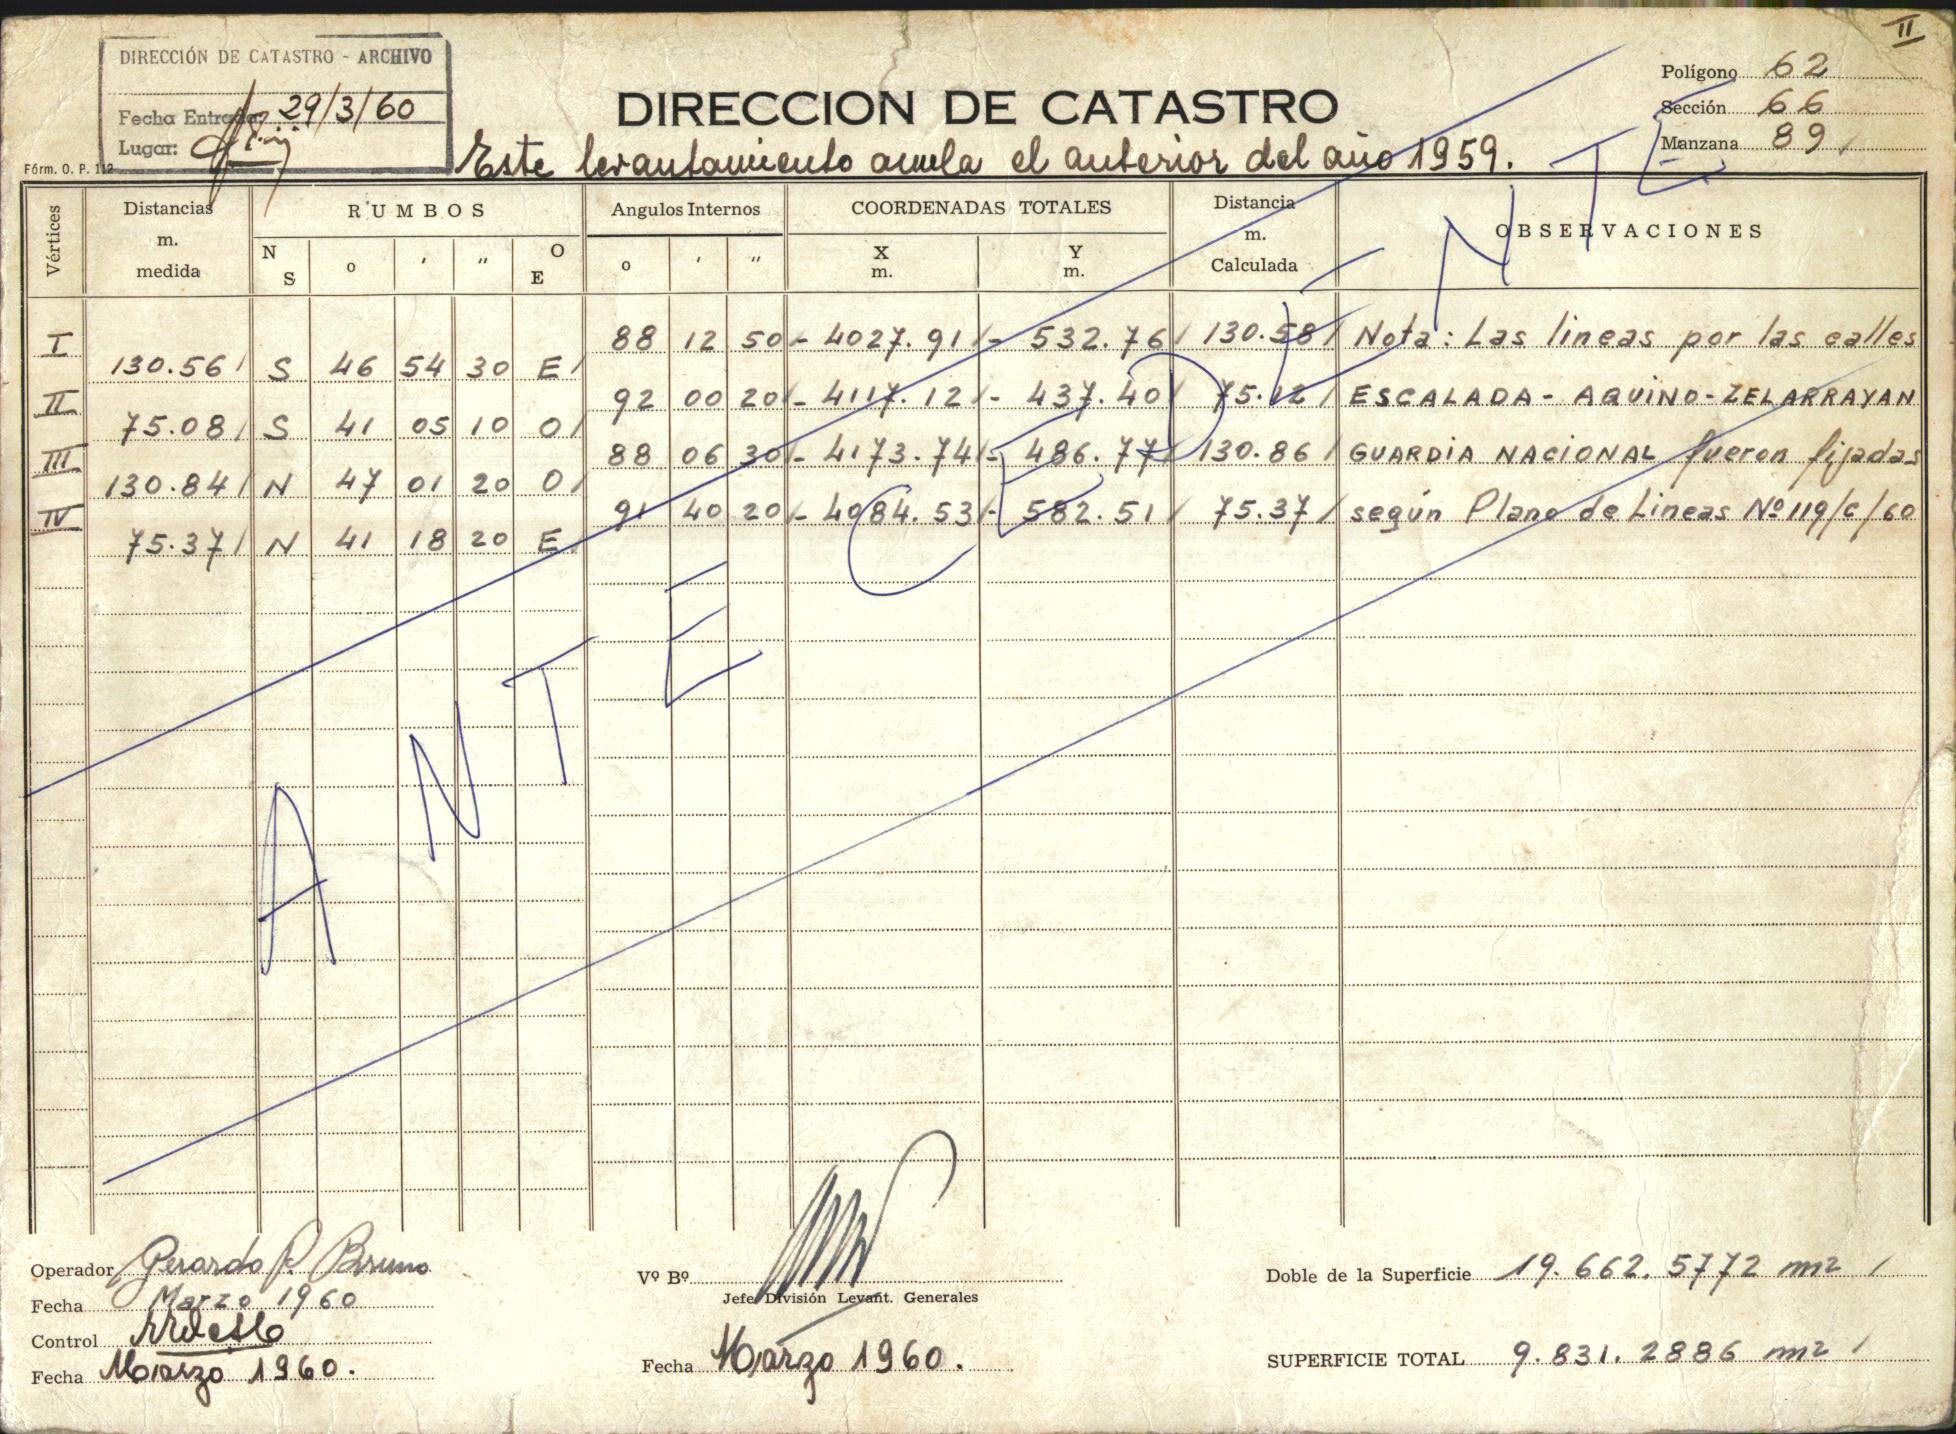 II
DIRECCIÓN DE CATASTRO - ARCHIVO
Fecha Entrada: 29/3/60
Lugar:
Fórm. O. P. 112
DIRECCION DE CATASTRO
Este levantamiento anula el anterior del año 1959.
Polígono 62
Sección 66
Manzana 89
Vértices Distancias m. medida RUMBOS Angulos Internos COORDENADAS TOTALES Distancia m. Calculada OBSERVACIONES
N S ° ' " O E ° ' " X m. Y m.
I 88 12 50 - 4027.91 - 532.76 130.58 Nota: Las lineas por las calles
130.56 S 46 54 30 E
II 92 00 20 - 4117.12 - 437.40 75.12 ESCALADA - AQUINO - ZELARRAYAN
75.08 S 41 05 10 O
III 88 06 30 - 4173.74 - 486.77 130.86 GUARDIA NACIONAL fueron fijadas
130.84 N 47 01 20 O
IV 91 40 20 - 4084.53 - 582.51 75.37 según Plano de Lineas Nº 119/C/60
75.37 N 41 18 20 E
ANTECEDENTE
Operador Gerardo P. Bruno
Fecha Marzo 1960
Control
Fecha Marzo 1960.
Vº Bº
Jefe División Levant. Generales
Fecha Marzo 1960.
Doble de la Superficie 19.662.5772 m2
SUPERFICIE TOTAL 9.831.2886 m2